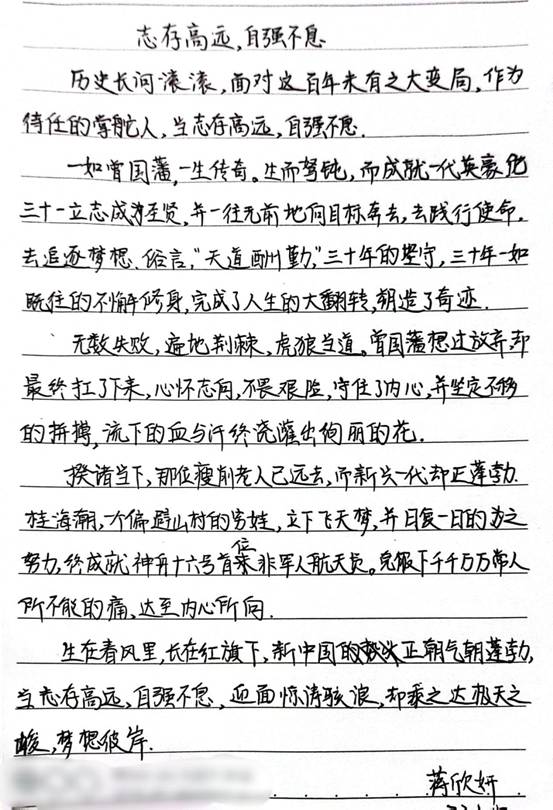 志存高远,自强不息
历史长河滚滚,面对这百年未有之大变局,作为
待任的掌舵人,当志存高远,自强不息.
一如曾国藩,一生传奇。生而驽钝,而成就一代英豪他
三十一立志成为圣贤,并一往无前地向目标奔去,去践行使命,
去追逐梦想.俗言,"天道酬勤,"三十年的坚守,三十年一如
既往的不懈修身,完成了人生的大翻转,朝造了奇迹.
无数失败,遍地荆棘,虎狼当道。曾国藩想过放弃,却
最终扛了下来,心怀志向,不畏艰险,守住了内心,并坚定不移
的拼搏,流下的血与汗终浇灌出绚丽的花.
揆诸当下,那位瘦削老人已远去,而新兴一代却正蓬勃.
桂海潮,一个偏僻山村的男娃,立下飞天梦,并日复一日的为之
努力,终成就神舟十六号首位非军人航天员。克服下千千万万常人
所不能的痛,达至内心所向.
生在春风里,长在红旗下,新中国的正朝气朝蓬勃,
当志存高远,自强不息,迎面惊涛骇浪,却乘之达极天之
峻,梦想彼岸.
蒋欣妍